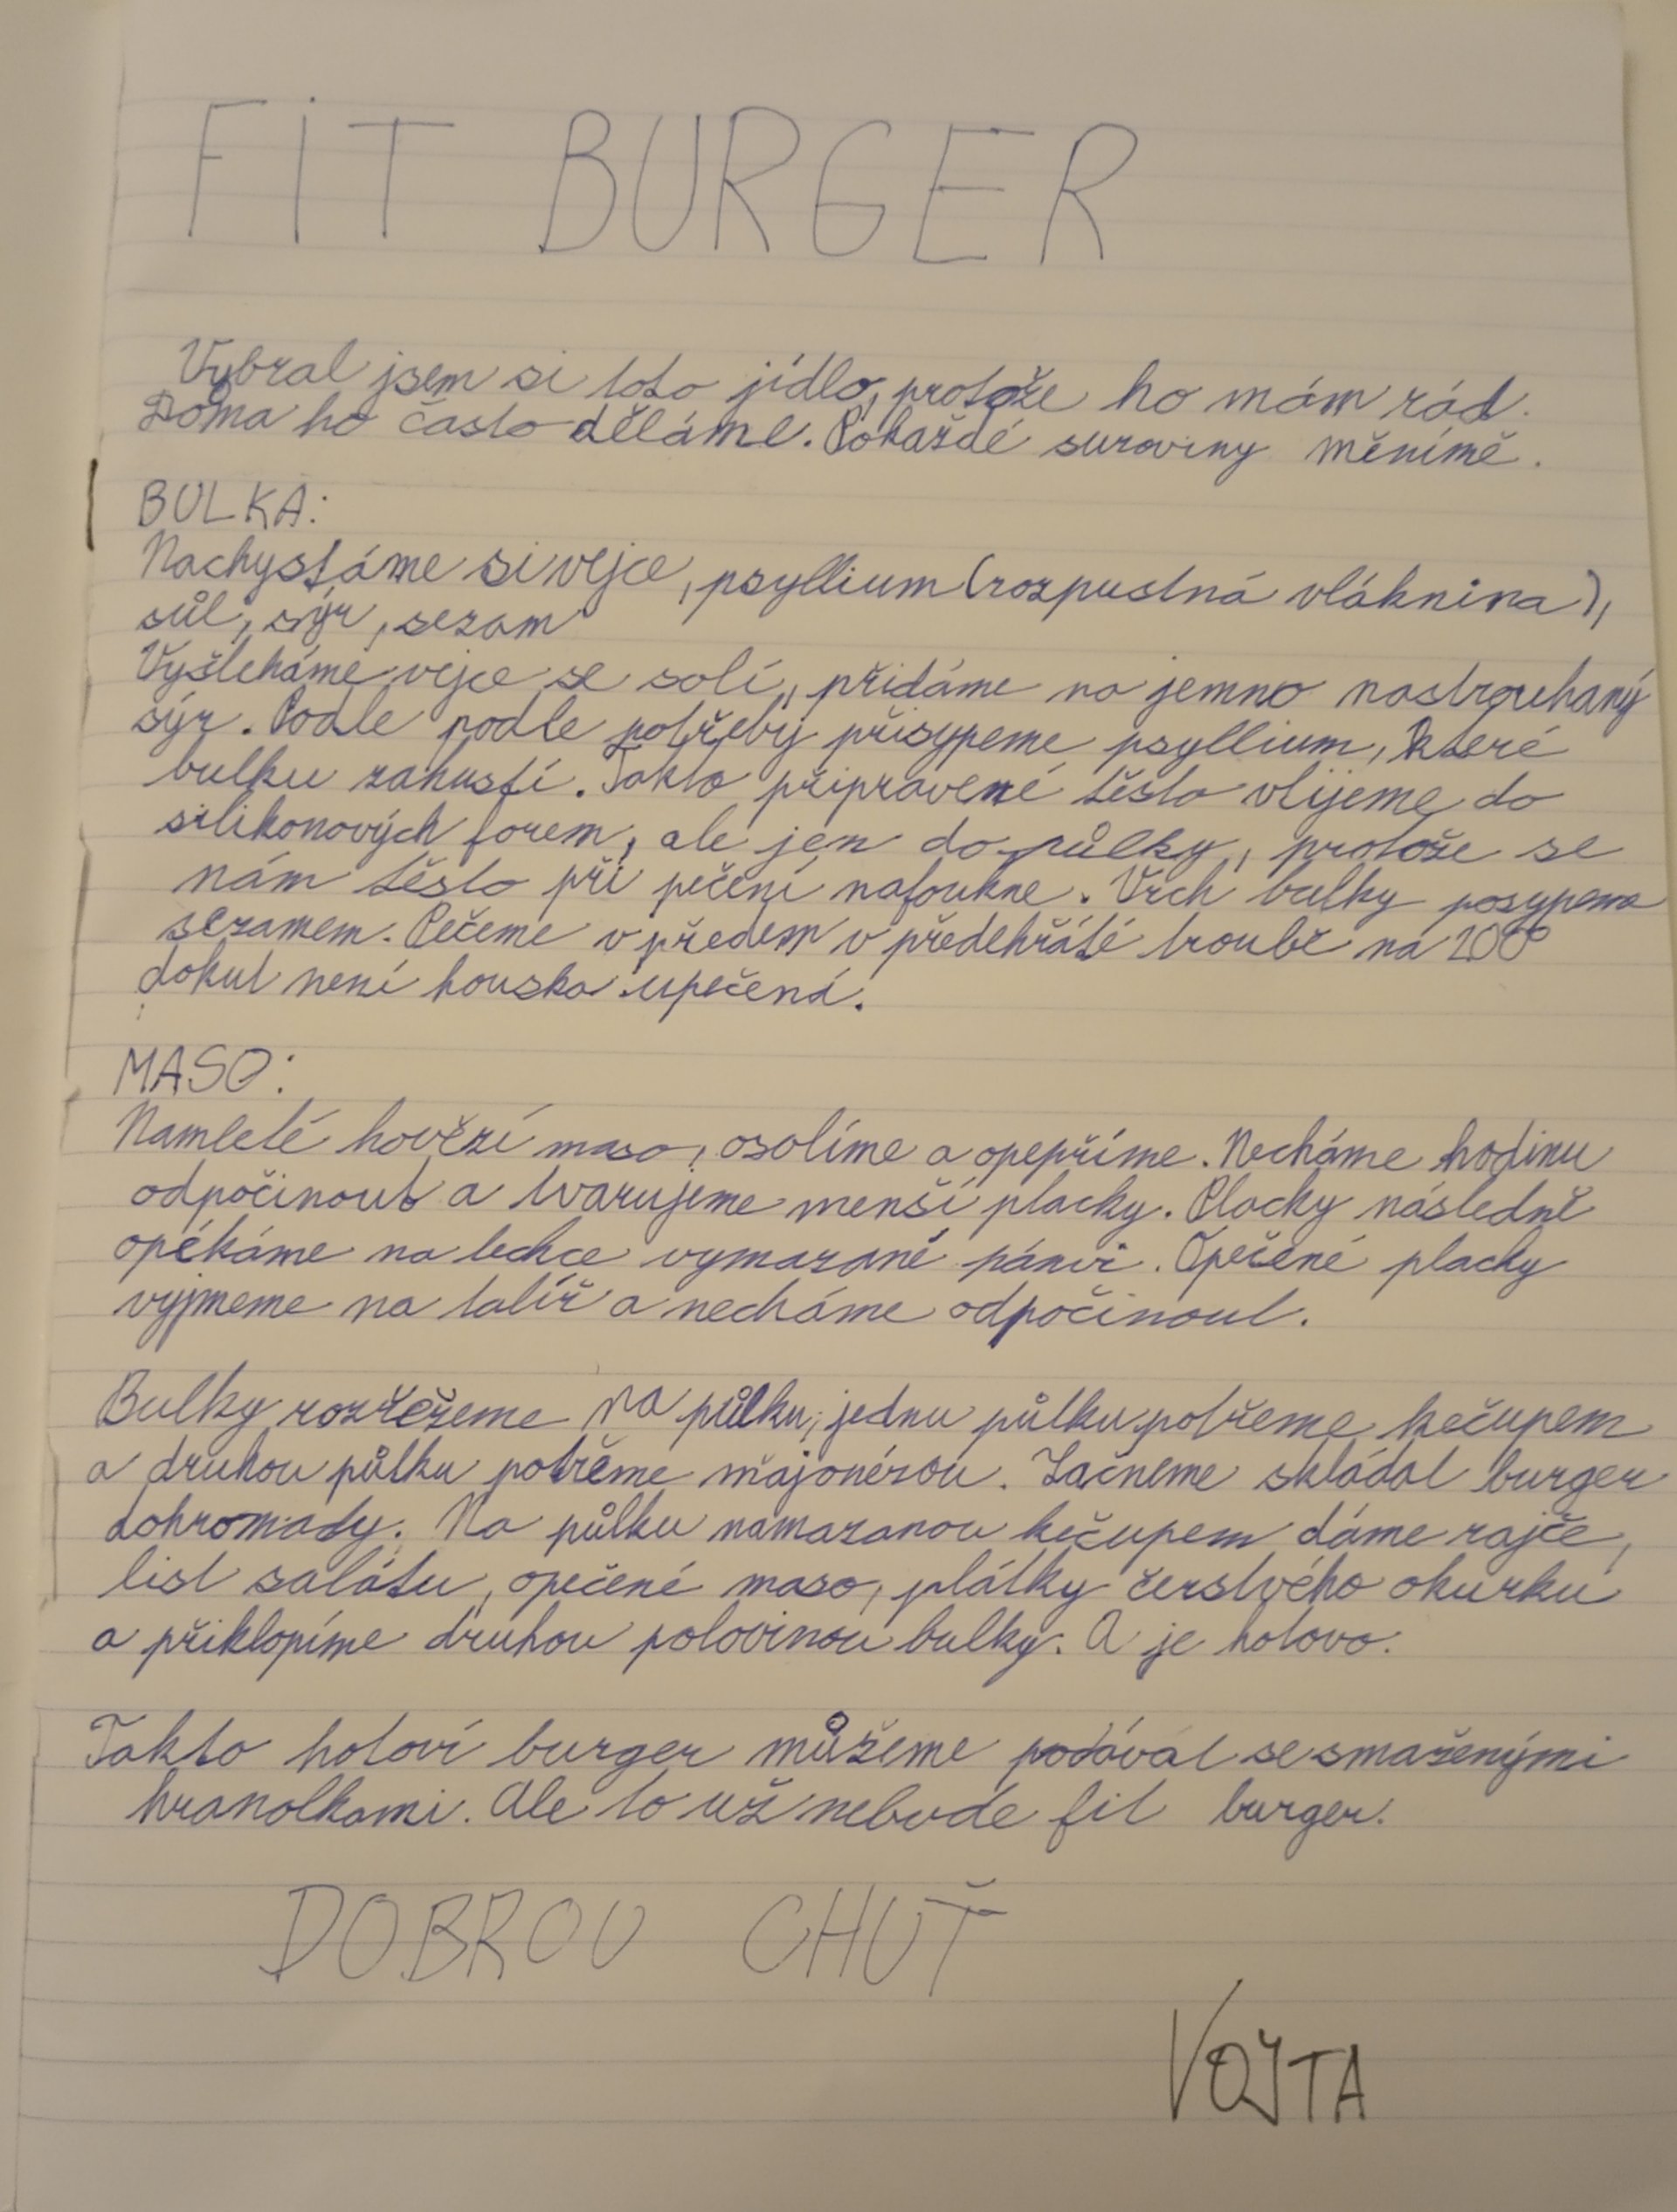 FiT BURGER
Vybral jsem si toto jídlo, protože ho mám rád.
Doma ho často děláme. Pokaždé suroviny měnímě.
BULKA:
Nachystáme si vejce, psyllium (rozpustná vláknina),
sůl, sýr, sezam
Vyšleháme vejce se solí, přidáme na jemno nastrouhaný
sýr. Podle podle potřeby přisypeme psyllium, které
bulku zahustí. Takto připravené těsto vlijeme do
silikonových forem, ale jen do půlky, protože se
nám těsto při pečení nafoukne. Vrch bulky posypeme
sezamem. Pečeme v předem v předehřáté troubě na 200°
dokut není houska upečená.
MASO:
Namleté hovězí maso, osolíme a opepříme. Necháme hodinu
odpočinout a tvarujeme menší placky. Placky následně
opékáme na lehce vymazané pánvi. Opečené placky
vyjmeme na talíř a necháme odpočinout.
Bulky rozřežeme na půlku, jednu půlku potřeme kečupem
a druhou půlku potřeme majonézou. Začneme skládat burger
dohromady. Na půlku namazanou kečupem dáme rajče,
list salátu, opečené maso, plátky čerstvého okurku
a přiklopíme druhou polovinou bulky. A je hotovo.
Takto hotoví burger můžeme podávat se smaženými
hranolkami. Ale to už nebude fit burger.
DOBROU CHUŤ
VOJTA